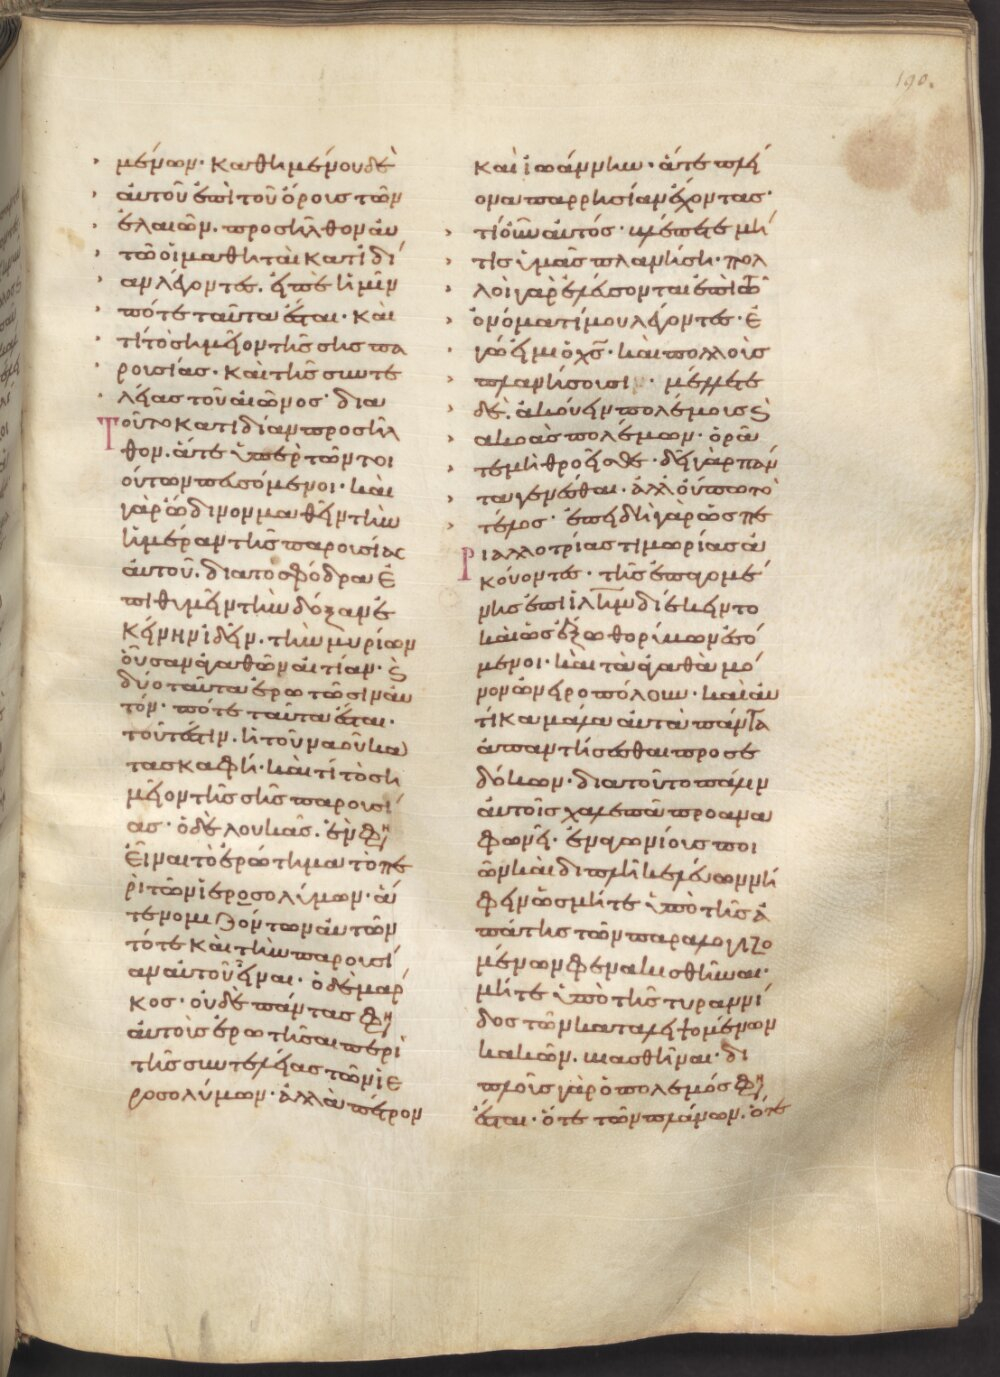 190.
μένων· καθημένου δὲ
αὐτοῦ ἐπὶ τοῦ ὄρους τῶν
ἐλαιῶν. προσῆλθον αὐ
τῶ οἱ μαθηταὶ κατ ἰδί
αν λέγοντες. εἰπὲ ἡμῖν
πότε ταῦτα ἔσται· καὶ
τί τὸ σημεῖον τῆς σῆς πα
ρουσίας· καὶ τῆς συντε
λείας τοῦ αἰῶνος· δια
Τοῦτο κατιδίαν προσῆλ
θον. ἅτε ὑπὲρ τῶν τοι
ούτων πευσόμενοι· καὶ
γὰρ ὤδινον μαθεῖν τὴν
ἡμέραν τῆς παρουσίας
αὐτοῦ. διὰ τὸ σφόδρα ἐ
πιθυμεῖν τὴν δόξαν ἐ
κείνην ἰδεῖν. τὴν μυρίων
οὖσαν ἀγαθῶν αἰτίαν· ϗ
δύο ταῦτα ἐρωτῶσιν αὐ
τόν· πότε ταῦτα ἔσται·
τουτέστιν. ἡ τοῦ ναοῦ κα
τασκαφή· καὶ τί τὸ ση
μεῖον τῆς σῆς παρουσί
ας· ὁ δὲ λουκᾶς. ἓν φη
εἶναι τὸ ἐρώτημα τὸ πε
ρὶ τῶν ἱεροσολύμων· ἅ
τε νομιζόντων αὐτῶν
τότε καὶ τὴν παρουσί
αν αὐτοῦ εἶναι. ὁ δὲ μάρ
κος· οὐδὲ πάντας φη
αὐτοὺς ἐρωτῆσαι περὶ
τῆς συντελείας τῶν ἱε
ροσολύμων· ἀλλὰ πέτρον
καὶ ἰωάννην· ἅτε πλεί
ονα παρρησίαν ἔχοντας·
τί οὖν αὐτός· βλέπετε μή
τις ὑμᾶς πλανήση· πολ
λοὶ γὰρ ἐλεύσονται ἐπὶ τῶ
ὀνόματί μου λέγοντες· ἐ
γώ εἰμι ὁ χς· καὶ πολλοὺς
πλανήσουσιν· μέλλετε
δὲ. ἀκούειν πολέμους ϗ
ἀκοὰς πολέμων· ὁρᾶ
τε μὴ θροεῖσθε· δεῖ γὰρ πάν
τα γενέσθαι. ἀλλ οὔπω τὸ
τέλος· ἐπειδὴ γὰρ ὡς πε
ρὶ ἀλλοτρίας τιμωρίας ἀ
κούοντες· τῆς ἐπαγομέ
νης ἐπὶ ἱλημ διέκειντο
καὶ ὡς ἔξω θορύβων ἐσό
μενοι· καὶ τὰ ἀγαθὰ μό
νον ὠνειροπόλουν· καὶ αὐ
τίκα μάλα αὐτὰ πάντα
ἀπαντήσεσθαι προσε
δόκων· διὰ τοῦτο πάλιν
αὐτοῖς χαλεπὰ προανα
φωνεῖ· ἐναγωνίους ποι
ῶν καὶ διπλῆ κελεύων νή
φειν ὡς μήτε ὑπὸ τῆς ἀ
πάτης τῶν παραλογιζο
μένων φενακισθῆναι·
μήτε ὑπὸ τῆς τυραννί
δος τῶν καταληψομένων
κακῶν. βιασθῆναι· δι
πλοῦς γὰρ ὁ πόλεμός φη
ἔσται· ὅτε τῶν πλάνων. ὅτε